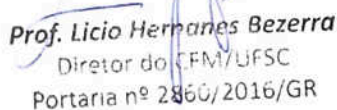 Prof. Licio Hernanes Bezerra
Diretor do CFM/UFSC
Portaria nº 2860/2016/GR